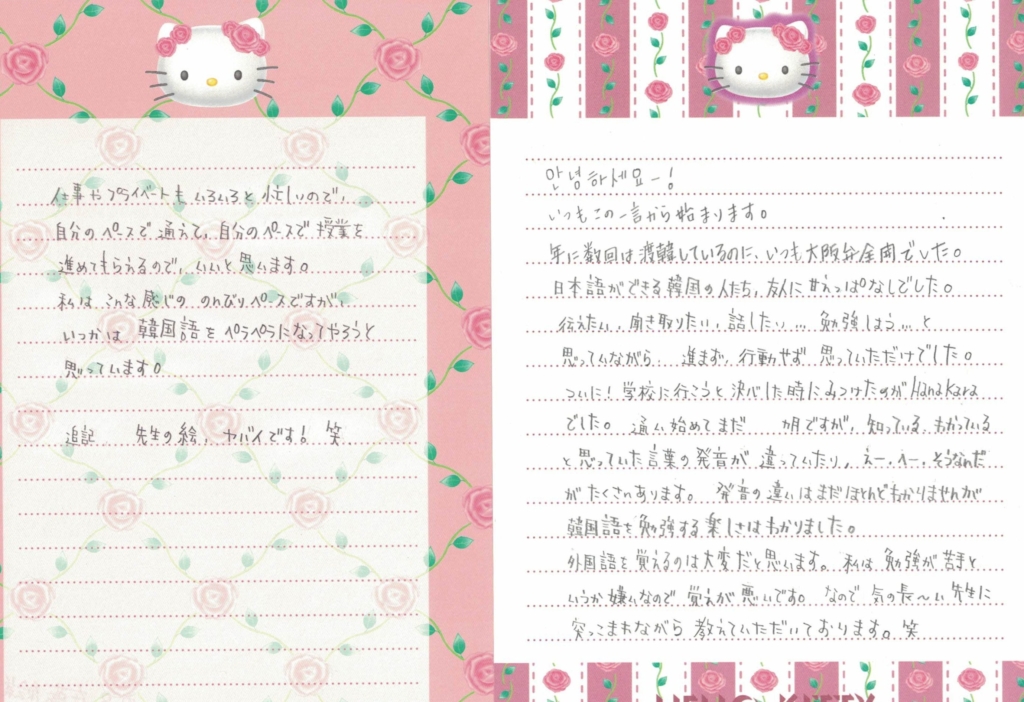 안녕하세요ー!
いつもこの一言から始まります。
年に数回は渡韓しているのに、いつも大阪弁全開でした。
日本語ができる韓国の人たち、友人に甘えっぱなしでした。
伝えたい、聞き取りたい、話したい… 勉強しよう… と
思っていながら、進まず、行動せず、思っていただけでした。
ついに!学校に行こうと決心した時にみつけたのがHanaKara
でした。 通い始めてまだ 月ですが、知っている、わかっている
と思っていた言葉の発音が違っていたり、えー、へー、そうなんだ
がたくさんあります。 発音の違いはまだほとんどわかりませんが
韓国語を勉強する楽しさはわかりました。
外国語を覚えるのは大変だと思います。私は勉強が苦手と
いうか嫌いなので覚えが悪いです。 なので 気の長〜い先生に
突っこまれながら 教えていただいております。笑
仕事やプライベートもいろいろと忙しいので、
自分のペースで通えて、自分のペースで授業を
進めてもらえるので、いいと思います。
私は、こんな感じの のんびりペースですが、
いつかは 韓国語をペラペラになってやろうと
思っています。
追記 先生の絵、ヤバイです! 笑
HELLO KITTY